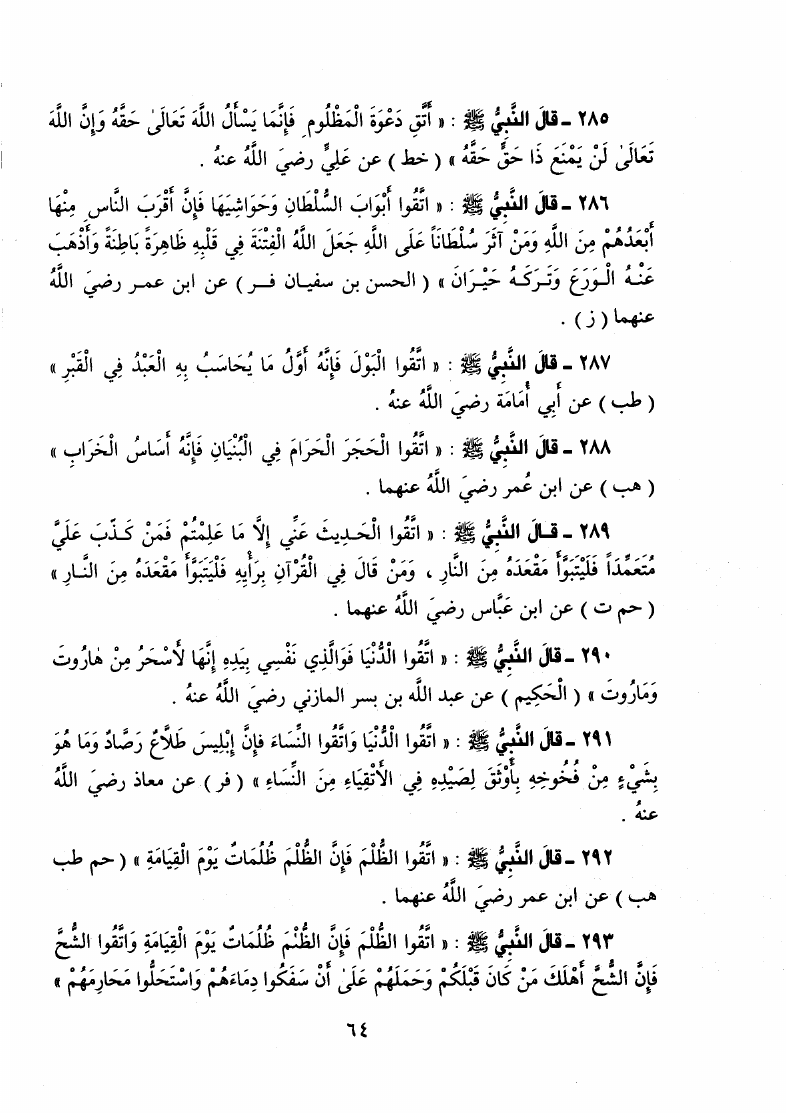 ٢٨٥ ـ قالَ النَّبِيُّ ﷺ : « اتَّقِ دَعْوَةَ الْمَظْلُومِ فَإِنَّمَا يَسْأَلُ اللَّهَ تَعَالَىٰ حَقَّهُ وَإِنَّ اللَّهَ
تَعَالَىٰ لَنْ يَمْنَعَ ذَا حَقٍّ حَقَّهُ » ( خط ) عن عَلِيٍّ رضيَ اللَّهُ عنهُ .
٢٨٦ ـ قالَ النَّبِيُّ ﷺ : « اتَّقُوا أَبْوَابَ السُّلْطَانِ وَحَوَاشِيَهَا فَإِنَّ أَقْرَبَ النَّاسِ مِنْهَا
أَبْعَدُهُمْ مِنَ اللَّهِ وَمَنْ آثَرَ سُلْطَاناً عَلَى اللَّهِ جَعَلَ اللَّهُ الْفِتْنَةَ فِي قَلْبِهِ ظَاهِرَةً بَاطِنَةً وَأَذْهَبَ
عَنْهُ الْوَرَعَ وَتَرَكَهُ حَيْرَانَ » ( الحسن بن سفيان فـر ) عن ابن عمـر رضيَ اللَّهُ
عنهما ( ز ) .
٢٨٧ ـ قالَ النَّبِيُّ ﷺ : « اتَّقُوا الْبَوْلَ فَإِنَّهُ أَوَّلُ مَا يُحَاسَبُ بِهِ الْعَبْدُ فِي الْقَبْرِ »
( طب ) عن أَبِي أُمَامَةَ رضيَ اللَّهُ عنهُ .
٢٨٨ ـ قالَ النَّبِيُّ ﷺ : « اتَّقُوا الْحَجَرَ الْحَرَامَ فِي الْبُنْيَانِ فَإِنَّهُ أَسَاسُ الْخَرَابِ »
( هب ) عن ابن عُمر رضيَ اللَّهُ عنهما .
٢٨٩ ـ قـالَ النَّبِيُّ ﷺ : « اتَّقُوا الْحَـدِيثَ عَنِّي إِلَّا مَا عَلِمْتُمْ فَمَنْ كَـذَبَ عَلَيَّ
مُتَعَمِّداً فَلْيَتَبَوَّأْ مَقْعَدَهُ مِنَ النَّارِ ، وَمَنْ قَالَ فِي الْقُرْآنِ بِرَأْيِهِ فَلْيَتَبَوَّأْ مَقْعَدَهُ مِنَ النَّـارِ »
( حم ت ) عن ابن عبَّاس رضيَ اللَّهُ عنهما .
٢٩٠ ـ قالَ النَّبِيُّ ﷺ : « اتَّقُوا الْدُّنْيَا فَوَالَّذِي نَفْسِي بِيَدِهِ إِنَّهَا لأَسْحَرُ مِنْ هَارُوتَ
وَمَارُوتَ » ( الْحَكِيم ) عن عبد اللَّه بن بسر المازني رضيَ اللَّهُ عنهُ .
٢٩١ ـ قالَ النَّبِيُّ ﷺ : « اتَّقُوا الْدُّنْيَا وَاتَّقُوا النِّسَاءَ فإِنَّ إِبْلِيسَ طَلَّاعٌ رَصَّادٌ وَمَا هُوَ
بِشَيْءٍ مِنْ فُخُوخِهِ بِأَوْثَقَ لِصَيْدِهِ فِي الأَتْقِيَاءِ مِنَ النِّسَاءِ » ( فر ) عن معاذ رضيَ اللَّهُ
عنهُ .
٢٩٢ ـ قالَ النَّبِيُّ ﷺ : « اتَّقُوا الظُّلْمَ فَإِنَّ الظُّلْمَ ظُلُمَاتٌ يَوْمَ الْقِيَامَةِ » ( حم طب
هب ) عن ابن عمر رضيَ اللَّهُ عنهما .
٢٩٣ ـ قالَ النَّبِيُّ ﷺ : « اتَّقُوا الظُّلْمَ فَإِنَّ الظُّلْمَ ظُلُمَاتٌ يَوْمَ الْقِيَامَةِ وَاتَّقُوا الشُّحَّ
فَإِنَّ الشُّحَّ أَهْلَكَ مَنْ كَانَ قَبْلَكُمْ وَحَمَلَهُمْ عَلَىٰ أَنْ سَفَكُوا دِمَاءَهُمْ وَاسْتَحَلُّوا مَحَارِمَهُمْ »
٦٤